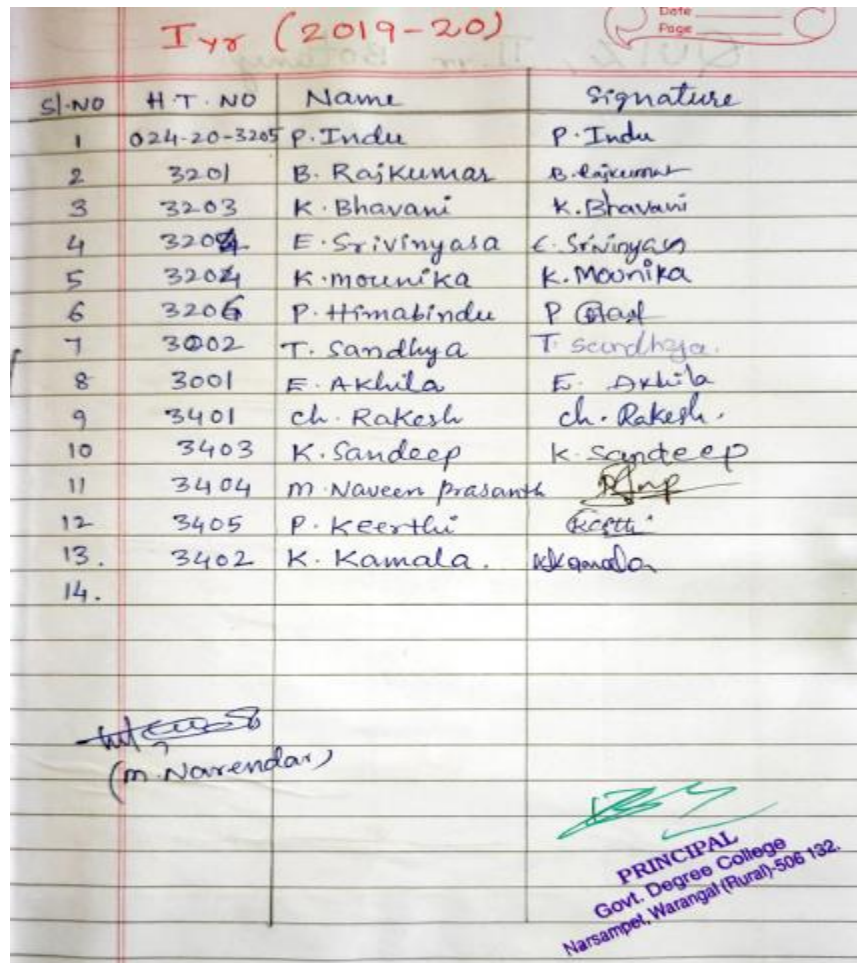 Date
I yr (2019-20)
Page
Sl.NO H.T. NO Name Signature
1 024-20-3205 P. Indu P. Indu
2 3201 B. RajKumar B. Rajkumar
3 3203 K. Bhavani K. Bhavani
4 3202 E. Srivinyasa E. Srivinyas
5 3204 K. mounika K. Mounika
6 3206 P. Himabindu P
7 3002 T. Sandhya T. Sandhya.
8 3001 E. Akhila E. Akhila
9 3401 ch. Rakesh ch. Rakesh.
10 3403 K. Sandeep K. Sandeep
11 3404 m. Naveen prasanth
12 3405 P. Keerthi Keerthi
13. 3402 K. Kamala. K Kamala
14.
(m. Narendar)
PRINCIPAL
Govt. Degree College
Narsampet, Warangal (Rural)-506 132.